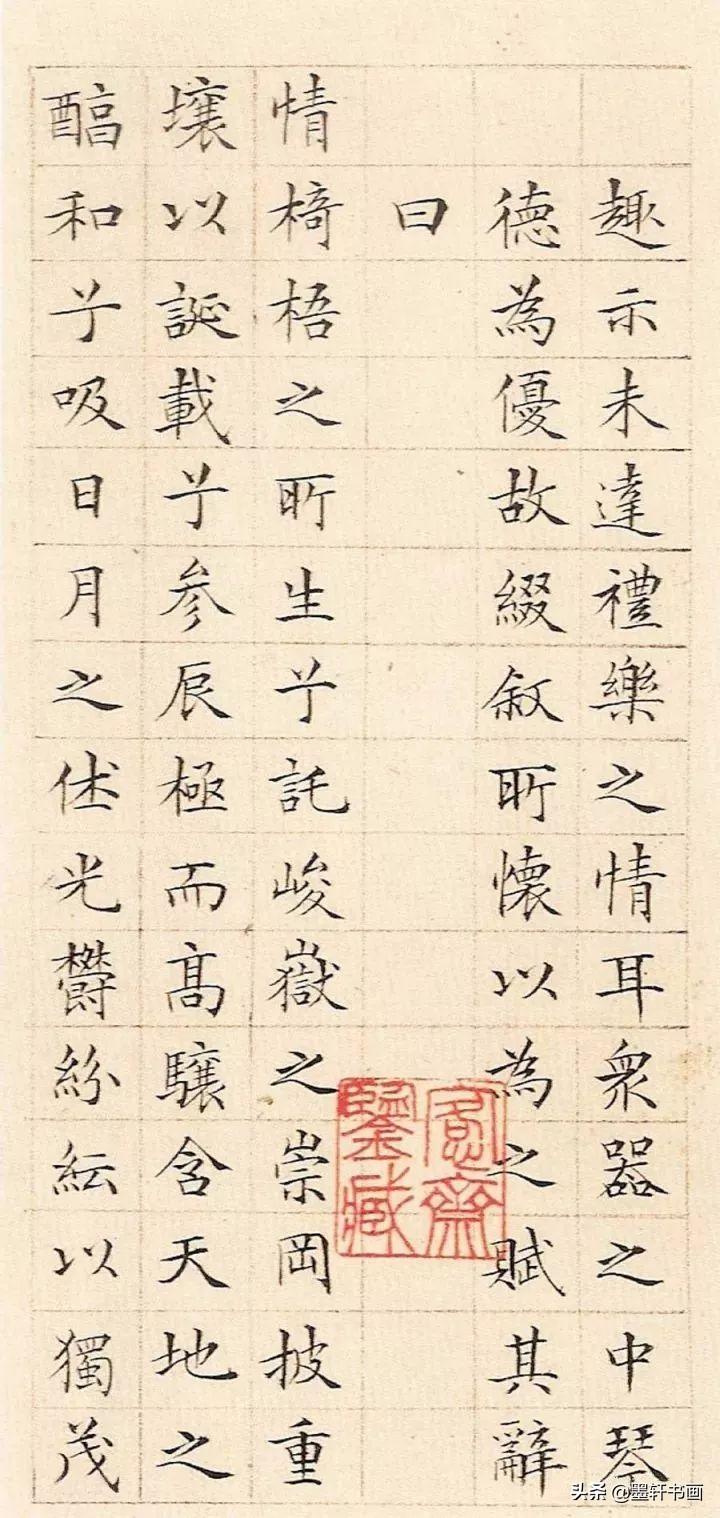 趣示未達禮樂之情耳衆器之中琴
德為優故綴叙所懷以為之賦其辭
曰
情椅梧之所生兮託峻嶽之崇岡披重
壤以誕載兮参辰極而高驤含天地之
醕和兮吸日月之休光鬱紛紜以獨茂
愙齋
鑒藏
头条 @墨轩书画